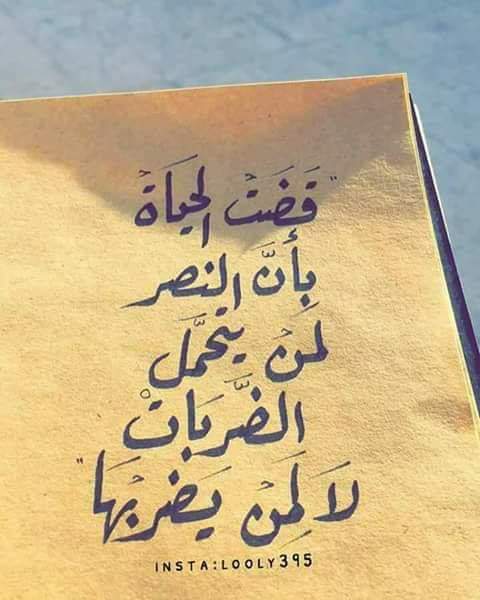 "قَضَت الحَيَاةَ
بِأَنَّ النصر
لمَنْ يتحمَّل
الضَّرَبَاتْ
لَا لمَنْ يَضربهَا"
INSTA:LOOLY395